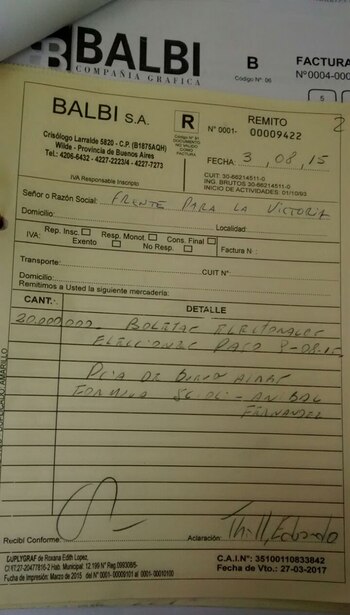 BALBI
COMPAÑIA GRAFICA
B
Código Nº 06
FACTURA
Nº0004-000
5
2
BALBI S.A.
Crisólogo Larralde 5820 - C.P. (B1875AQH)
Wilde - Provincia de Buenos Aires
Tel.: 4206-6432 - 4227-2223/4 - 4227-7273
IVA Responsable Inscripto
R
Código Nº 91
DOCUMENTO
NO VALIDO
COMO
FACTURA
REMITO
Nº 0001- 00009422
FECHA: 3 , 08 , 15
CUIT: 30-66214511-0
ING. BRUTOS 30-66214511-0
INICIO DE ACTIVIDADES: 01/10/93
Señor o Razón Social: FRENTE PARA LA VICTORIA
Domicilio: Localidad
IVA: Rep. Insc. Resp. Monot Cons. Final
Exento No Resp. Factura N :
Transporte: CUIT Nº:
Domicilio:
Remitimos a Usted la siguiente mercadería:
CANT. DETALLE
20.000.000. BOLETAS ELECTORALES
ELECCIONES PASO 9-08-15.
PCIA DE BUENOS AIRES
FORMULA SCIOLI - ANIBAL
FERNANDEZ
DUPLICADO AMARILLO
Recibí Conforme: Aclaración: Eduardo
DUPLYGRAF de Roxana Edith Lopez,
CUIT:27-20477816-2 Hab. Municipal: 12.199 Nº Reg.099308/5-
Fecha de Impresión: Marzo de 2015 del Nº 0001-00009101 al 0001-00010100
C.A.I.Nº: 35100110833842
Fecha de Vto.: 27-03-2017